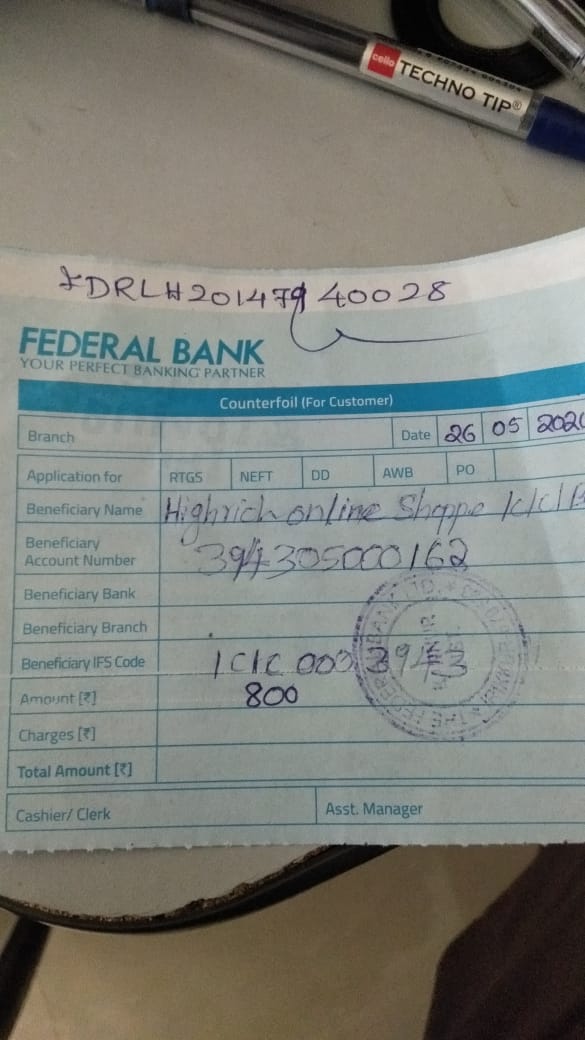 cello TECHNO TIP®
FDRLH20147940028
FEDERAL BANK
YOUR PERFECT BANKING PARTNER
Counterfoil (For Customer)
Branch Date 26 05 2020
Application for RTGS NEFT DD AWB PO
Beneficiary Name Highrich online Shoppe
Beneficiary
Account Number 394305000162
Beneficiary Bank
Beneficiary Branch
Beneficiary IFS Code
Amount [₹] 800
Charges [₹]
Total Amount [₹]
Cashier/ Clerk Asst. Manager